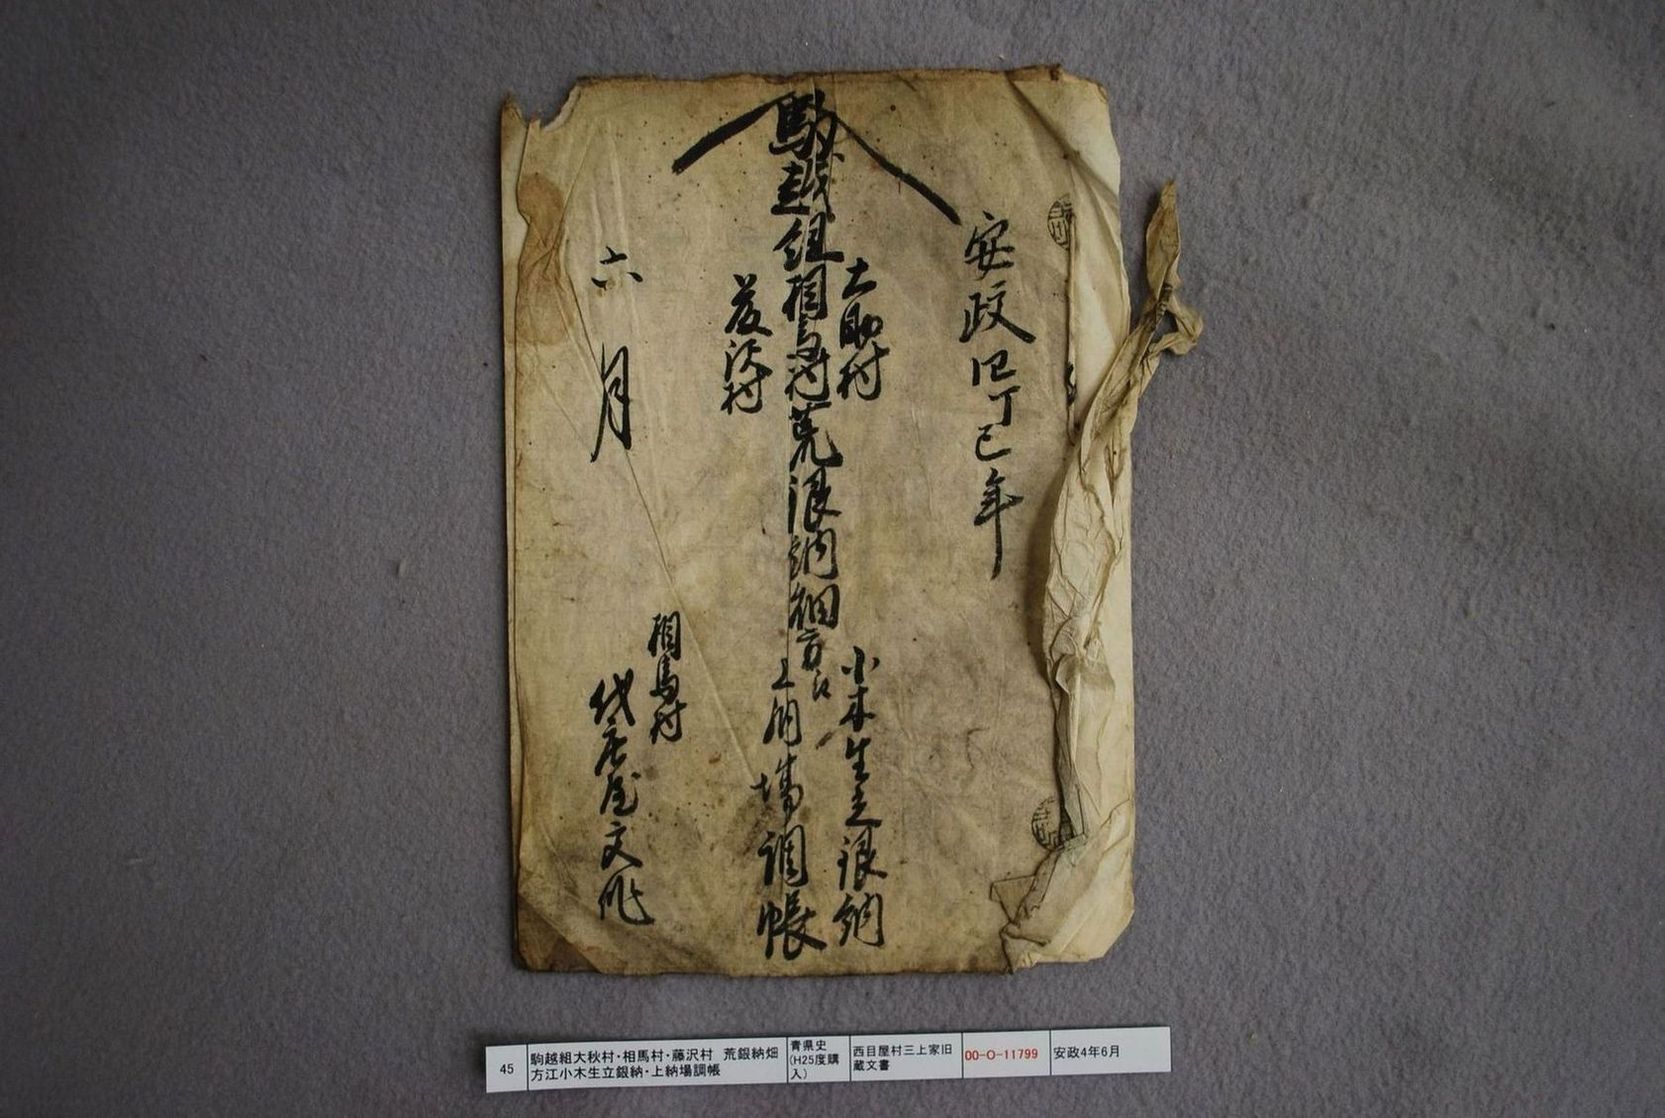 安政四丁巳年
駒越組
大助村
相馬村
藤沢村
荒銀納畑方江
小木生立銀納
上納場調帳
六月
相馬村
代庄屋文作
45
駒越組大秋村・相馬村・藤沢村　荒銀納畑
方江小木生立銀納・上納場調帳
青県史
(H25度購
入)
西目屋村三上家旧
蔵文書
00-O-11799
安政4年6月